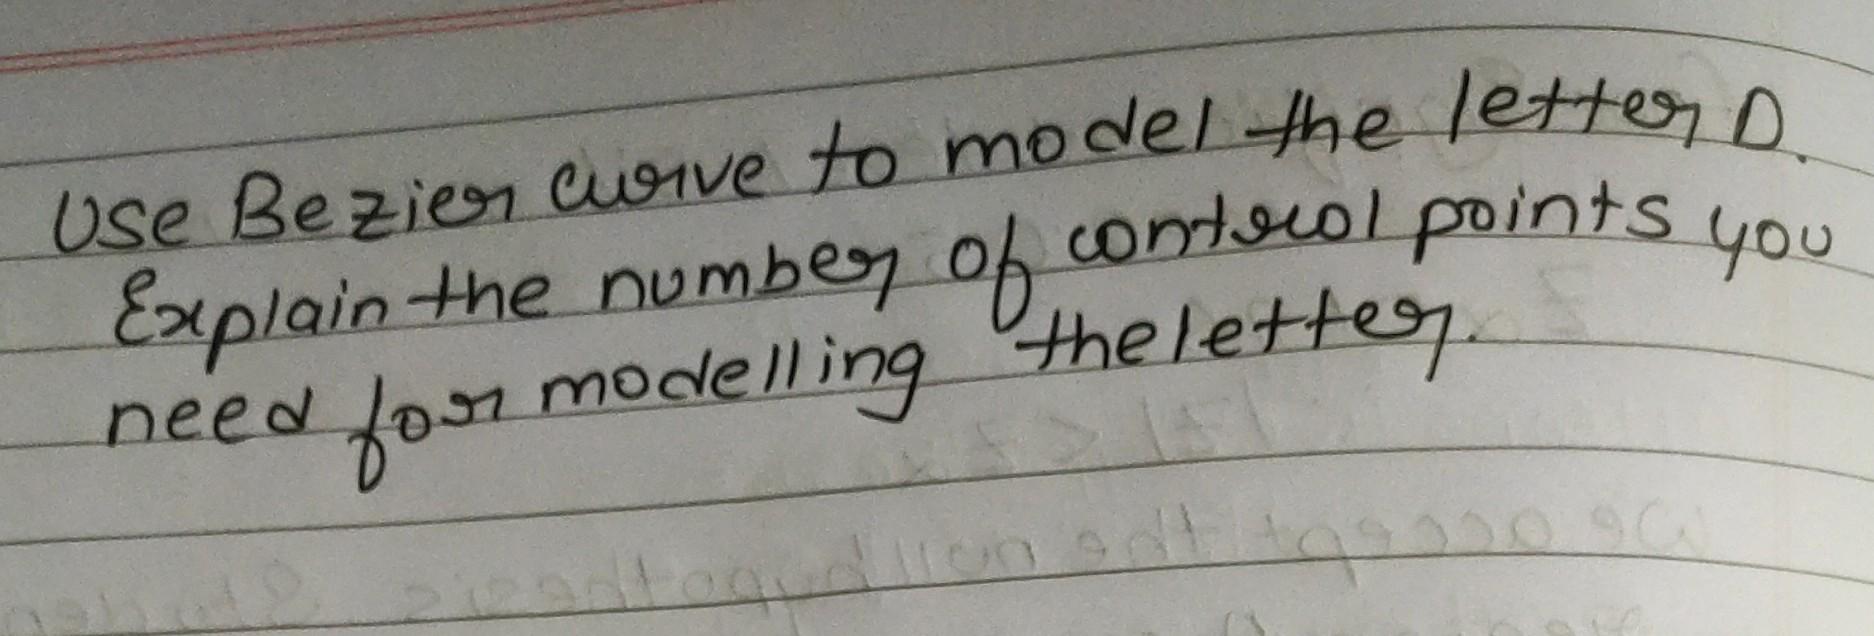 Use Bezier curve to model the letter D.
Explain the number of control points you
need for modelling the letter.